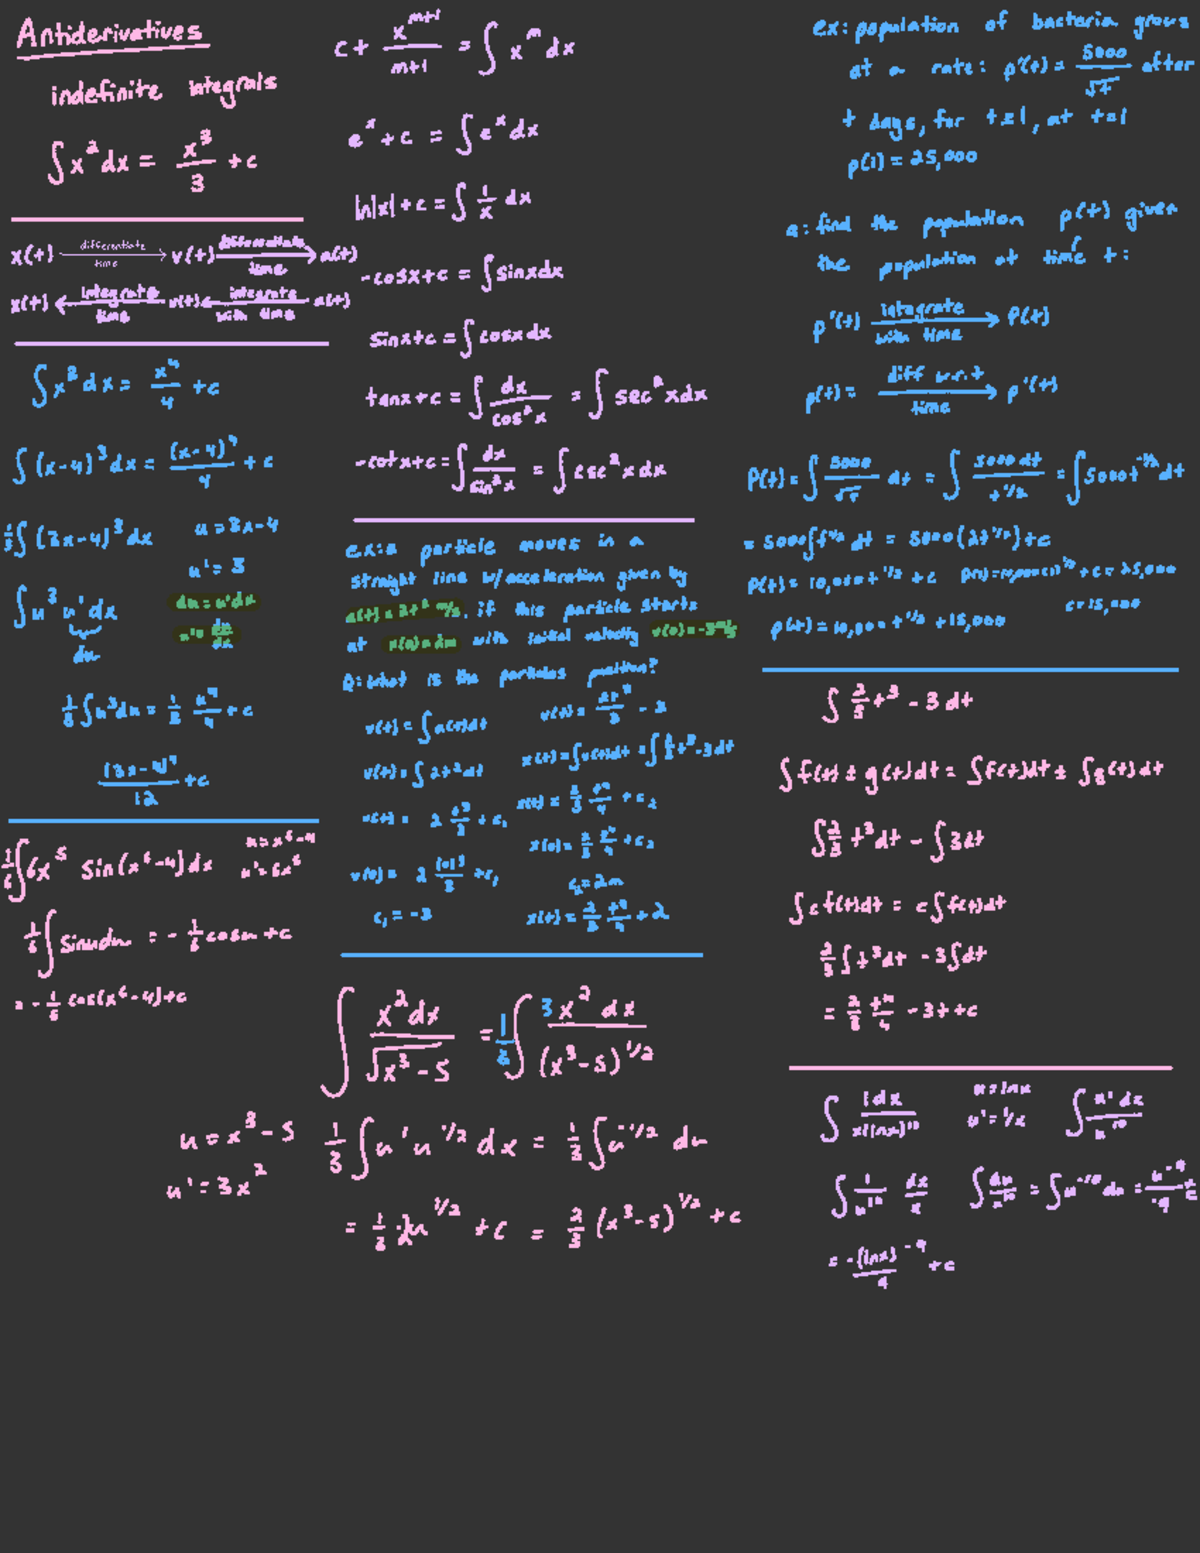 Antiderivatives
indefinite integrals
∫x²dx = x³/3 + c
x(t) differentiate/time → v(t) differentiate/time → a(t)
x(t) ← integrate/time v(t) ← integrate/with time a(t)
∫x³dx = x⁴/4 + c
∫(x-4)³dx = (x-4)⁴/4 + c
1/3∫(3x-4)³dx u = 3x-4
u' = 3
∫u³ u'dx du = u'dx
du u' = du/dx
1/3∫u³du = 1/3 u⁴/4 + c
(3x-4)⁴/12 + c
1/6∫6x⁵ sin(x⁶-4)dx u = x⁶-4
u' = 6x⁵
1/6∫sinudu = -1/6cosu + c
= -1/6 cos(x⁶-4)+c
c + x^(m+1)/(m+1) = ∫x^m dx
eˣ + c = ∫eˣdx
ln|x| + c = ∫1/x dx
-cosx+c = ∫sinxdx
sinx+c = ∫cosxdx
tanx+c = ∫dx/cos²x = ∫sec²xdx
-cotx+c = ∫dx/sin²x = ∫csc²xdx
ex:a particle moves in a
straight line w/acceleration given by
a(t) = 2t² m/s, if this particle starts
at x(0)=2m with initial velocity v(0)=-3m/s
Q:What is the particles position?
v(t) = ∫a(t)dt v(t) = 2t³/3 - 3
v(t) = ∫2t²dt x(t) = ∫v(t)dt = ∫2/3t³-3dt
v(t) = 2 t³/3 + c₁ x(t) = 2/3 t⁴/4 + c₂
v(0) = 2 (0)³/3 + c₁ x(0) = 2/3 t⁴/4 + c₂
c₁ = -3 c₂=2m
x(t) = 2/3 t⁴/4 + 2
∫x²dx/√(x³-5) = 1/3∫3x²dx/(x³-5)^(1/2)
u = x³-5 1/3∫u'u^(-1/2)dx = 1/3∫u^(-1/2)du
u' = 3x²
= 1/3·2u^(1/2) + c = 2/3(x³-5)^(1/2) + c
ex: population of bacteria grows
at a rate: p'(t) = 5000/√t after
t days, for t≥1, at t=1
p(1) = 25,000
a: find the population p(t) given
the population at time t:
p'(t) integrate/with time → P(t)
p(t) = diff w.r.t/time → p'(t)
P(t) = ∫5000/√t dt = ∫5000dt/t^(1/2) = ∫5000t^(-1/2)dt
= 5000∫t^(-1/2) dt = 5000(2t^(1/2))+c
P(t) = 10,000t^(1/2) + c p(1)=10,000(1)^(1/2)+c = 25,000
c=15,000
p(t) = 10,000t^(1/2) + 15,000
∫2/3t³ - 3dt
∫f(t) ± g(t)dt = ∫f(t)dt ± ∫g(t)dt
∫2/3t³dt - ∫3dt
∫cf(t)dt = c∫f(t)dt
2/3∫t³dt - 3∫dt
= 2/3 t⁴/4 - 3t + c
∫1dx/x(lnx)¹⁰ u = lnx ∫u'dx/u¹⁰
u' = 1/x
∫1/u¹⁰ dx/x ∫du/u¹⁰ = ∫u⁻¹⁰du = u⁻⁹/-9 + c
= -(lnx)⁻⁹/9 + c